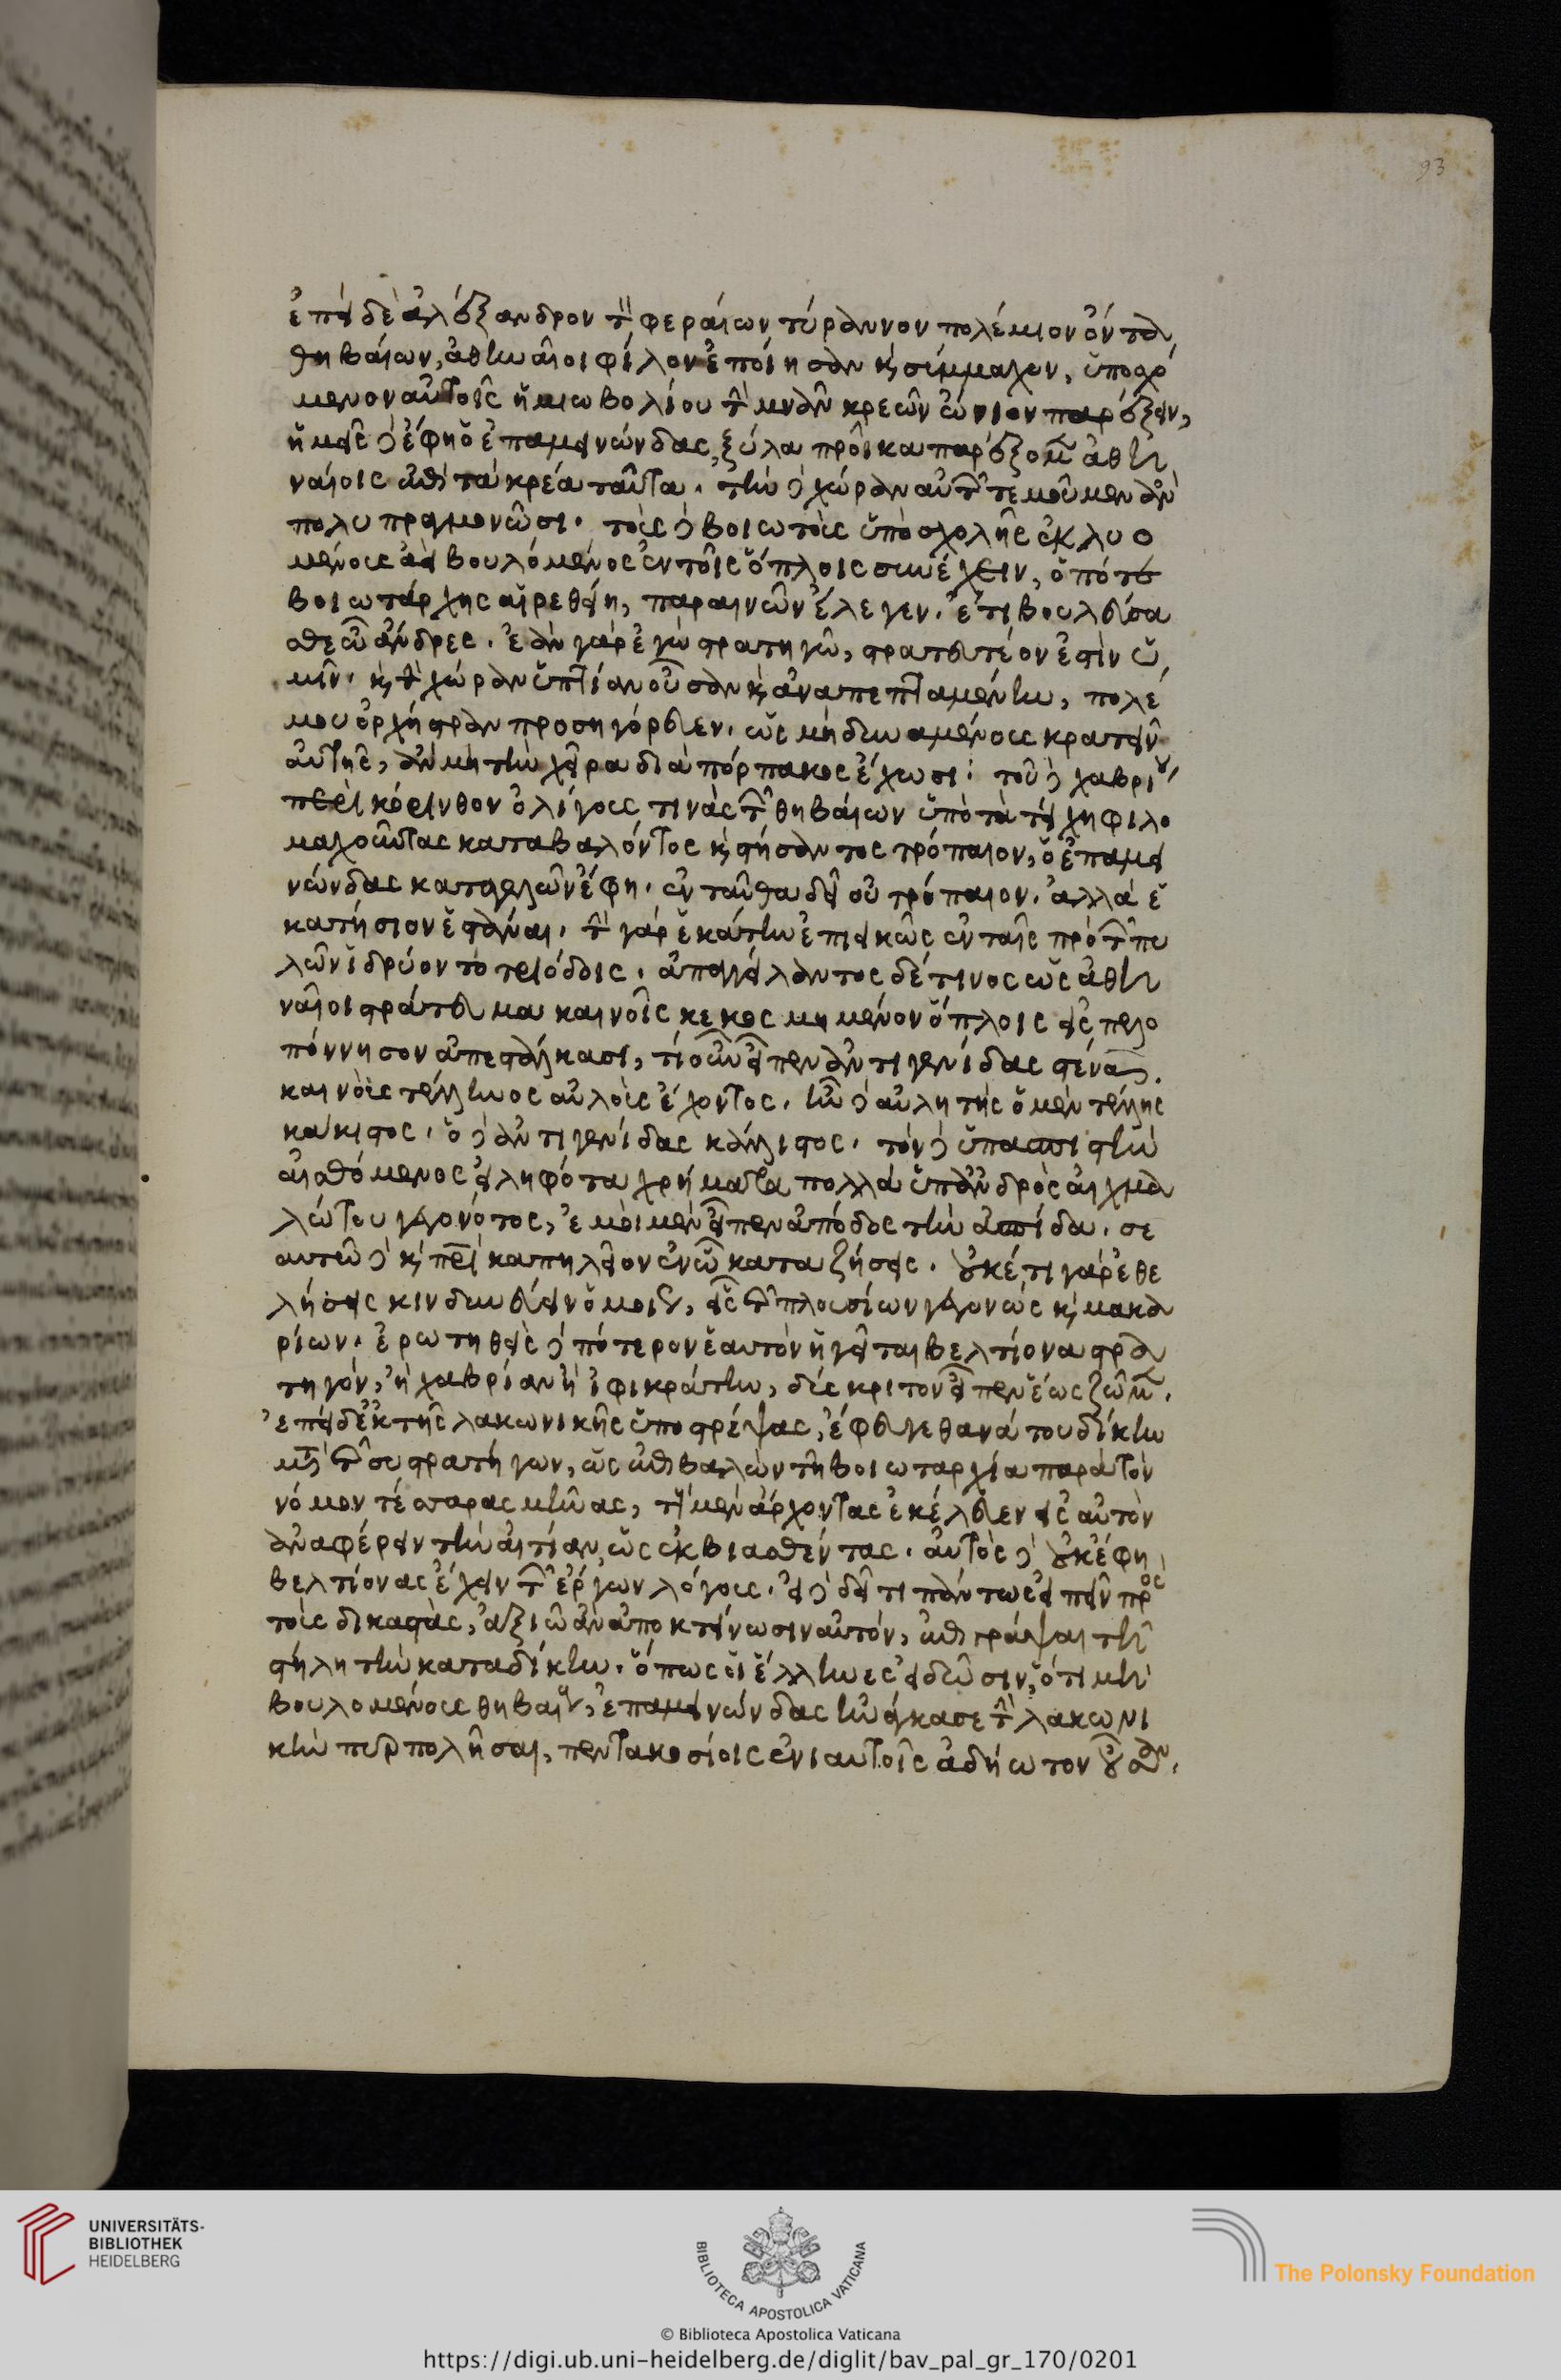 93
ἐπεὶ δὲ ἀλέξανδρον τὸν φεραίων τύραννον πολέμιον ὄντα
θηβαίων, ἀθηναῖοι φίλον ἐποίησαν καὶ σύμμαχον, ὑποσχό
μενον αὐτοῖς ἡμιωβολίου τὴν μνᾶν κρεῶν ὤνιον παρέξειν,
ἡμεῖς δὲ ἔφη ὁ ἐπαμεινώνδας, ξύλα προῖκα παρέξομεν ἀθη
ναίοις ἐπὶ τὰ κρέα ταῦτα. τὴν δὲ χώραν αὐτῶν τεμοῦμεν ἂν
πολυπραγμονῶσι. τοὺς δὲ βοιωτοὺς ὑπὸ σχολῆς ἐκλυο
μένους ἀεὶ βουλόμενος ἐν τοῖς ὅπλοις συνέχειν, ὁπότε
βοιωτάρχης αἱρεθείη, παραινῶν ἔλεγεν. ἔτι βουλεύσα
σθε ὦ ἄνδρες. ἐὰν γὰρ ἐγὼ στρατηγῶ, στρατευτέον ἐστὶν ὑ
μῖν. καὶ τὴν χώραν ὑπτίαν οὖσαν καὶ ἀναπεπταμένην, πολέ
μου ὀρχήστραν προσηγόρευεν. ὡς μὴ δυναμένους κρατεῖν
αὐτῆς, ἂν μὴ τὴν χεῖρα διὰ πόρπακος ἔχωσι. τοῦ δὲ χαβρίου
περὶ κόρινθον ὀλίγους τινὰς τῶν θηβαίων ὑπὸ τὰ τείχη φιλο
μαχοῦντας καταβαλόντος καὶ στήσαντος τρόπαιον, ὁ ἐπαμει
νώνδας καταγελῶν ἔφη. ἐνταῦθα δεῖ οὐ τρόπαιον. ἀλλὰ ἑ
κατήσιον ἑστάναι. τὴν γὰρ ἑκάτην ἐπιεικῶς ἐν ταῖς πρὸ τῶν πυ
λῶν ἱδρύοντο τριόδοις. ἀπαγγείλαντος δέ τινος ὡς ἀθη
ναῖοι στράτευμα καινοῖς κεκοσμημένον ὅπλοις εἰς πελο
πόννησον ἀπεστάλκασι, τί οὖν εἶπεν ἀντιγενίδας στένει.
καινοὺς τέλληνος αὐλοὺς ἔχοντος. ἦν δὲ αὐλητὴς ὁ μὲν τέλλης
κάκιστος. ὁ δὲ ἀντιγενίδας κάλλιστος. τὸν δὲ ὑπασπιστὴν
αἰσθόμενος εἰληφότα χρήματα πολλὰ ὑπ ἀνδρὸς αἰχμα
λώτου γεγονότος, ἐμοὶ μὲν εἶπεν ἀπόδος τὴν ἀσπίδα. σε
αυτῶ δὲ καὶ περὶ καπηλεῖον ἐν ὧ καταζήσεις. οὐκέτι γὰρ ἐθε
λήσεις κινδυνεύειν ὁμοίως, εἷς τῶν πλουσίων γεγονὼς καὶ μακα
ρίων. ἐρωτηθεὶς δὲ πότερον ἑαυτὸν ἡγεῖται βελτίονα στρα
τηγόν, ἢ χαβρίαν ἢ ἰφικράτην, δύσκριτον εἶπεν ἕως ζῶμεν.
ἐπεὶ δὲ ἐκ τῆς λακωνικῆς ὑποστρέψας, ἔφευγε θανάτου δίκην
μετὰ τῶν συστρατήγων, ὡς ἐπιβαλὼν τῆ βοιωταρχία παρὰ τὸν
νόμον τέσσαρας μῆνας, τοὺς μὲν ἄρχοντας ἐκέλευεν εἰς αὐτὸν
ἀναφέρειν τὴν αἰτίαν, ὡς ἐκβιασθέντας. αὐτὸς δὲ οὐκ ἔφη
βελτίονας ἔχειν τῶν ἔργων λόγους. εἰ δὲ δεῖ τι πάντως εἰπεῖν πρὸς
τοὺς δικαστὰς, ἀξιῶ ἂν ἀποκτείνωσιν αὐτόν, ἐπιγράψαι τῆ
στήλη τὴν καταδίκην. ὅπως οἱ ἕλληνες εἰδῶσιν, ὅτι μὴ
βουλομένους θηβαίους, ἐπαμεινώνδας ἠνάγκασε τὴν λακωνι
κὴν πυρπολῆσαι, πεντακοσίοις ἐνιαυτοῖς ἀδήωτον οὖσαν.
UNIVERSITÄTS-
BIBLIOTHEK
HEIDELBERG
BIBLIOTECA APOSTOLICA VATICANA
The Polonsky Foundation
© Biblioteca Apostolica Vaticana
https://digi.ub.uni-heidelberg.de/diglit/bav_pal_gr_170/0201